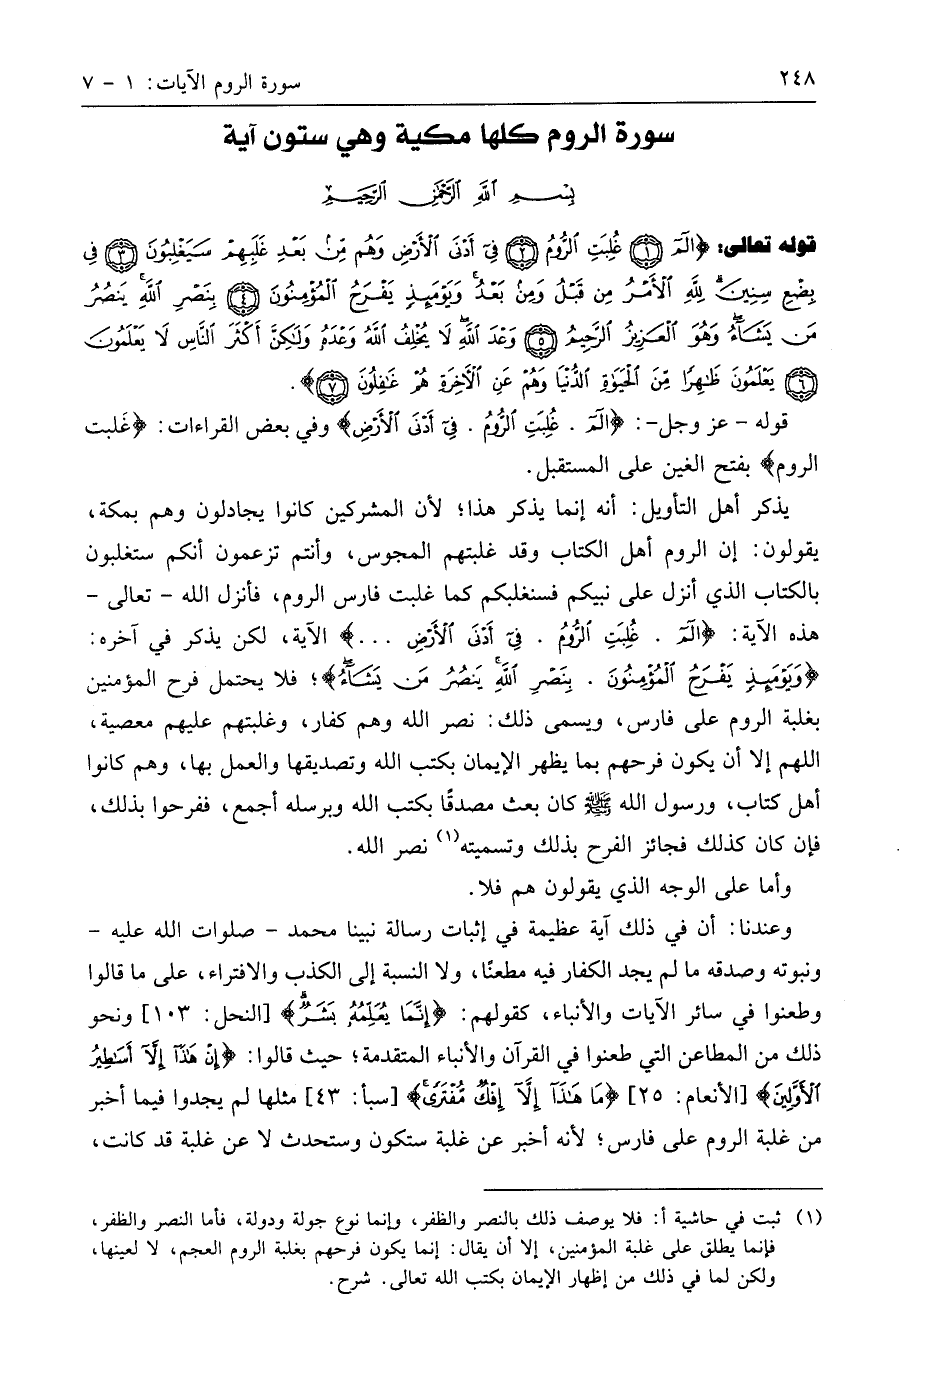 ٢٤٨ سورة الروم الآيات: ١ - ٧
سورة الروم كلها مكية وهي ستون آية
بِسْمِ ٱللَّهِ ٱلرَّحْمَٰنِ ٱلرَّحِيمِ
قوله تعالى: ﴿الٓمٓ ۝١ غُلِبَتِ ٱلرُّومُ ۝٢ فِىٓ أَدْنَى ٱلْأَرْضِ وَهُم مِّنۢ بَعْدِ غَلَبِهِمْ سَيَغْلِبُونَ ۝٣ فِى
بِضْعِ سِنِينَۗ لِلَّهِ ٱلْأَمْرُ مِن قَبْلُ وَمِنۢ بَعْدُۚ وَيَوْمَئِذٍ يَفْرَحُ ٱلْمُؤْمِنُونَ ۝٤ بِنَصْرِ ٱللَّهِۚ يَنصُرُ
مَن يَشَآءُۖ وَهُوَ ٱلْعَزِيزُ ٱلرَّحِيمُ ۝٥ وَعْدَ ٱللَّهِۖ لَا يُخْلِفُ ٱللَّهُ وَعْدَهُۥ وَلَٰكِنَّ أَكْثَرَ ٱلنَّاسِ لَا يَعْلَمُونَ
۝٦ يَعْلَمُونَ ظَٰهِرًا مِّنَ ٱلْحَيَوٰةِ ٱلدُّنْيَا وَهُمْ عَنِ ٱلْأٓخِرَةِ هُمْ غَٰفِلُونَ ۝٧﴾.
قوله - عز وجل-: ﴿الٓمٓ . غُلِبَتِ ٱلرُّومُ . فِىٓ أَدْنَى ٱلْأَرْضِ﴾ وفي بعض القراءات: ﴿غَلبت
الروم﴾ بفتح الغين على المستقبل.
يذكر أهل التأويل: أنه إنما يذكر هذا؛ لأن المشركين كانوا يجادلون وهم بمكة،
يقولون: إن الروم أهل الكتاب وقد غلبتهم المجوس، وأنتم تزعمون أنكم ستغلبون
بالكتاب الذي أنزل على نبيكم فسنغلبكم كما غلبت فارس الروم، فأنزل الله - تعالى -
هذه الآية: ﴿الٓمٓ . غُلِبَتِ ٱلرُّومُ . فِىٓ أَدْنَى ٱلْأَرْضِ ...﴾ الآية، لكن يذكر في آخره:
﴿وَيَوْمَئِذٍ يَفْرَحُ ٱلْمُؤْمِنُونَ . بِنَصْرِ ٱللَّهِۚ يَنصُرُ مَن يَشَآءُۖ﴾؛ فلا يحتمل فرح المؤمنين
بغلبة الروم على فارس، ويسمى ذلك: نصر الله وهم كفار، وغلبتهم عليهم معصية،
اللهم إلا أن يكون فرحهم بما يظهر الإيمان بكتب الله وتصديقها والعمل بها، وهم كانوا
أهل كتاب، ورسول الله ﷺ كان بعث مصدقًا بكتب الله وبرسله أجمع، ففرحوا بذلك،
فإن كان كذلك فجائز الفرح بذلك وتسميته(١) نصر الله.
وأما على الوجه الذي يقولون هم فلا.
وعندنا: أن في ذلك آية عظيمة في إثبات رسالة نبينا محمد - صلوات الله عليه -
ونبوته وصدقه ما لم يجد الكفار فيه مطعنًا، ولا النسبة إلى الكذب والافتراء، على ما قالوا
وطعنوا في سائر الآيات والأنباء، كقولهم: ﴿إِنَّمَا يُعَلِّمُهُۥ بَشَرٌۗ﴾ [النحل: ١٠٣] ونحو
ذلك من المطاعن التي طعنوا في القرآن والأنباء المتقدمة؛ حيث قالوا: ﴿إِنْ هَٰذَآ إِلَّآ أَسَٰطِيرُ
ٱلْأَوَّلِينَ﴾ [الأنعام: ٢٥] ﴿مَا هَٰذَآ إِلَّآ إِفْكٌ مُّفْتَرًىۚ﴾ [سبأ: ٤٣] مثلها لم يجدوا فيما أخبر
من غلبة الروم على فارس؛ لأنه أخبر عن غلبة ستكون وستحدث لا عن غلبة قد كانت،
(١) ثبت في حاشية أ: فلا يوصف ذلك بالنصر والظفر، وإنما نوع جولة ودولة، فأما النصر والظفر،
فإنما يطلق على غلبة المؤمنين، إلا أن يقال: إنما يكون فرحهم بغلبة الروم العجم، لا لعينها،
ولكن لما في ذلك من إظهار الإيمان بكتب الله تعالى. شرح.